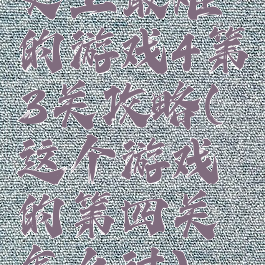 史上最难
的游戏4第
3关攻略(
这个游戏
的第四关